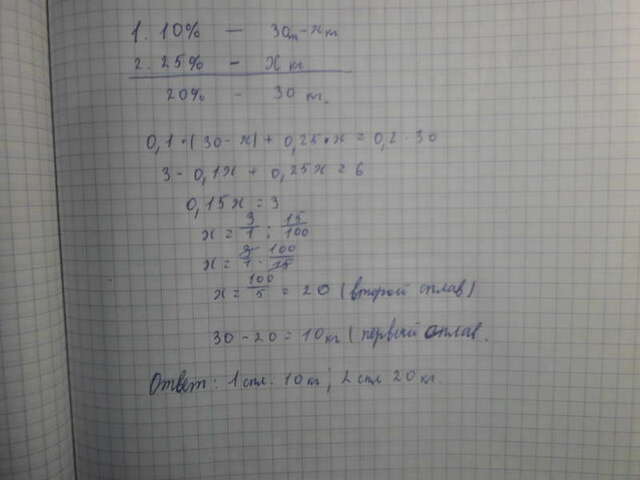 1. 10% — 30 - x кг
2. 25% - x кг
20% - 30 кг.
0,1 · (30 - x) + 0,25 · x = 0,2 · 30
3 - 0,1x + 0,25x = 6
0,15x = 3
x = 3/1 : 15/100
x = 3/1 · 100/15
x = 100/5 = 20 (второй сплав)
30 - 20 = 10 кг (первый сплав.
Ответ: 1 спл. 10 кг; 2 спл 20 кг.